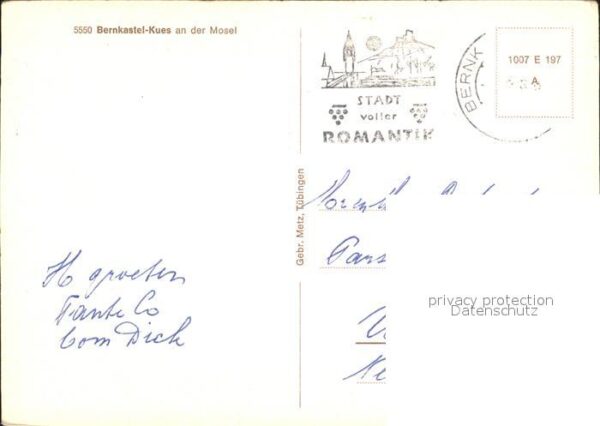 5550 Bernkastel-Kues an der Mosel
STADT
voller
ROMANTIK
BERNK
1007 E 197
A
Gebr. Metz, Tübingen
H groeten
Tante Co
Oom Dick
privacy protection
Datenschutz